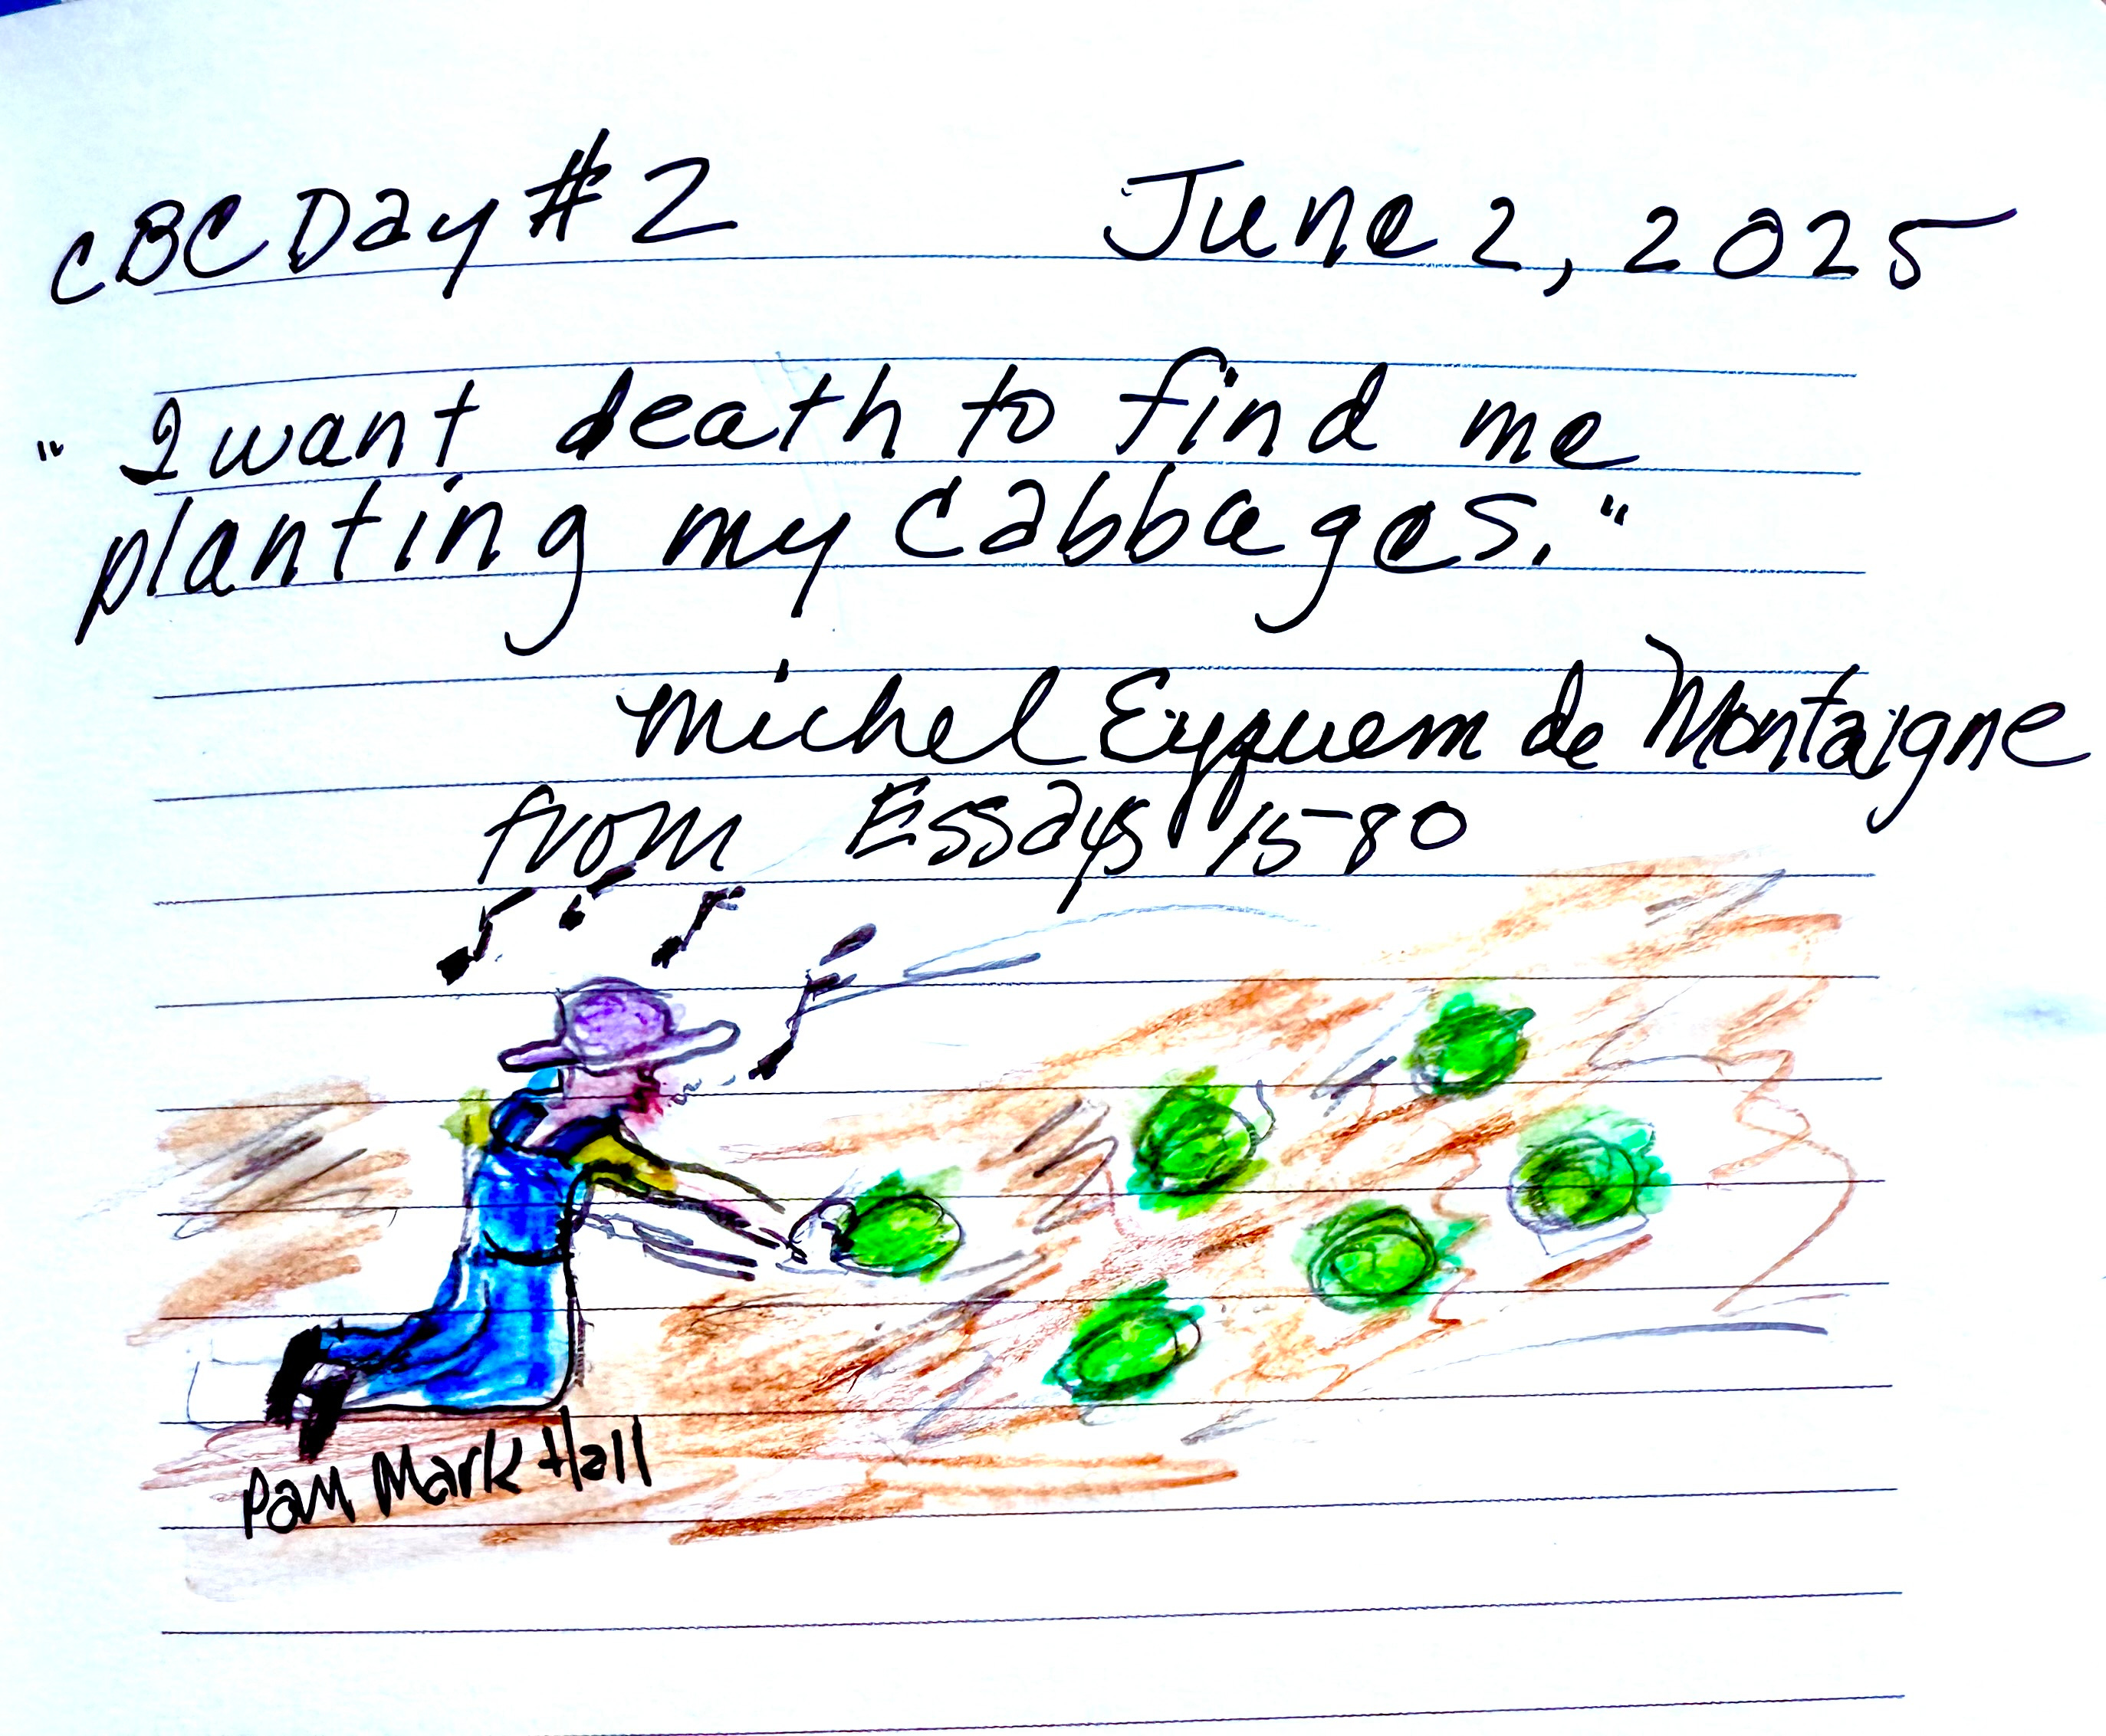 CBC Day #2 June 2, 2025
"I want death to find me
planting my cabbages."
Michel Eyquem de Montaigne
from Essays 1580
Pam Mark Hall